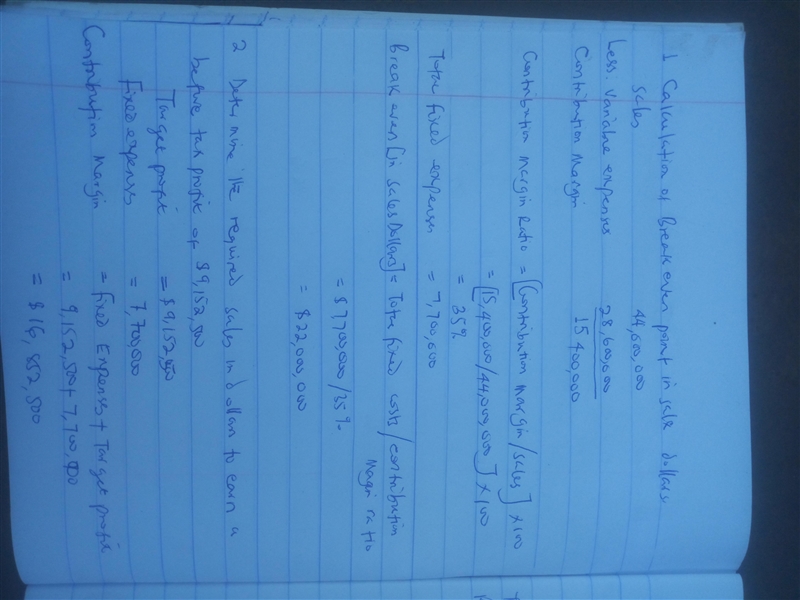 1 Calculation of Break even point in sale dollars
Sales 44,000,000
Less: Variable expenses 28,600,000
Contribution Margin 15 400,000
Contribution margin Ratio = [Contribution Margin/sales] × 100
= [15,400,000/44,000,000] × 100
= 35%
Total fixed expenses = 7,700,000
Break even [in sales Dollars] = Total fixed costs/contribution
Margin ratio
= $7700,000/35%
= $22,000,000
2 Determine the required sales in dollars to earn a
before tax profit of $9,152,500
Target profit = $9,152,500
Fixed expenses = 7,700,000
Contribution Margin = fixed Expenses + Target profit
= 9,152,500 + 7,700,000
= $16,852,500